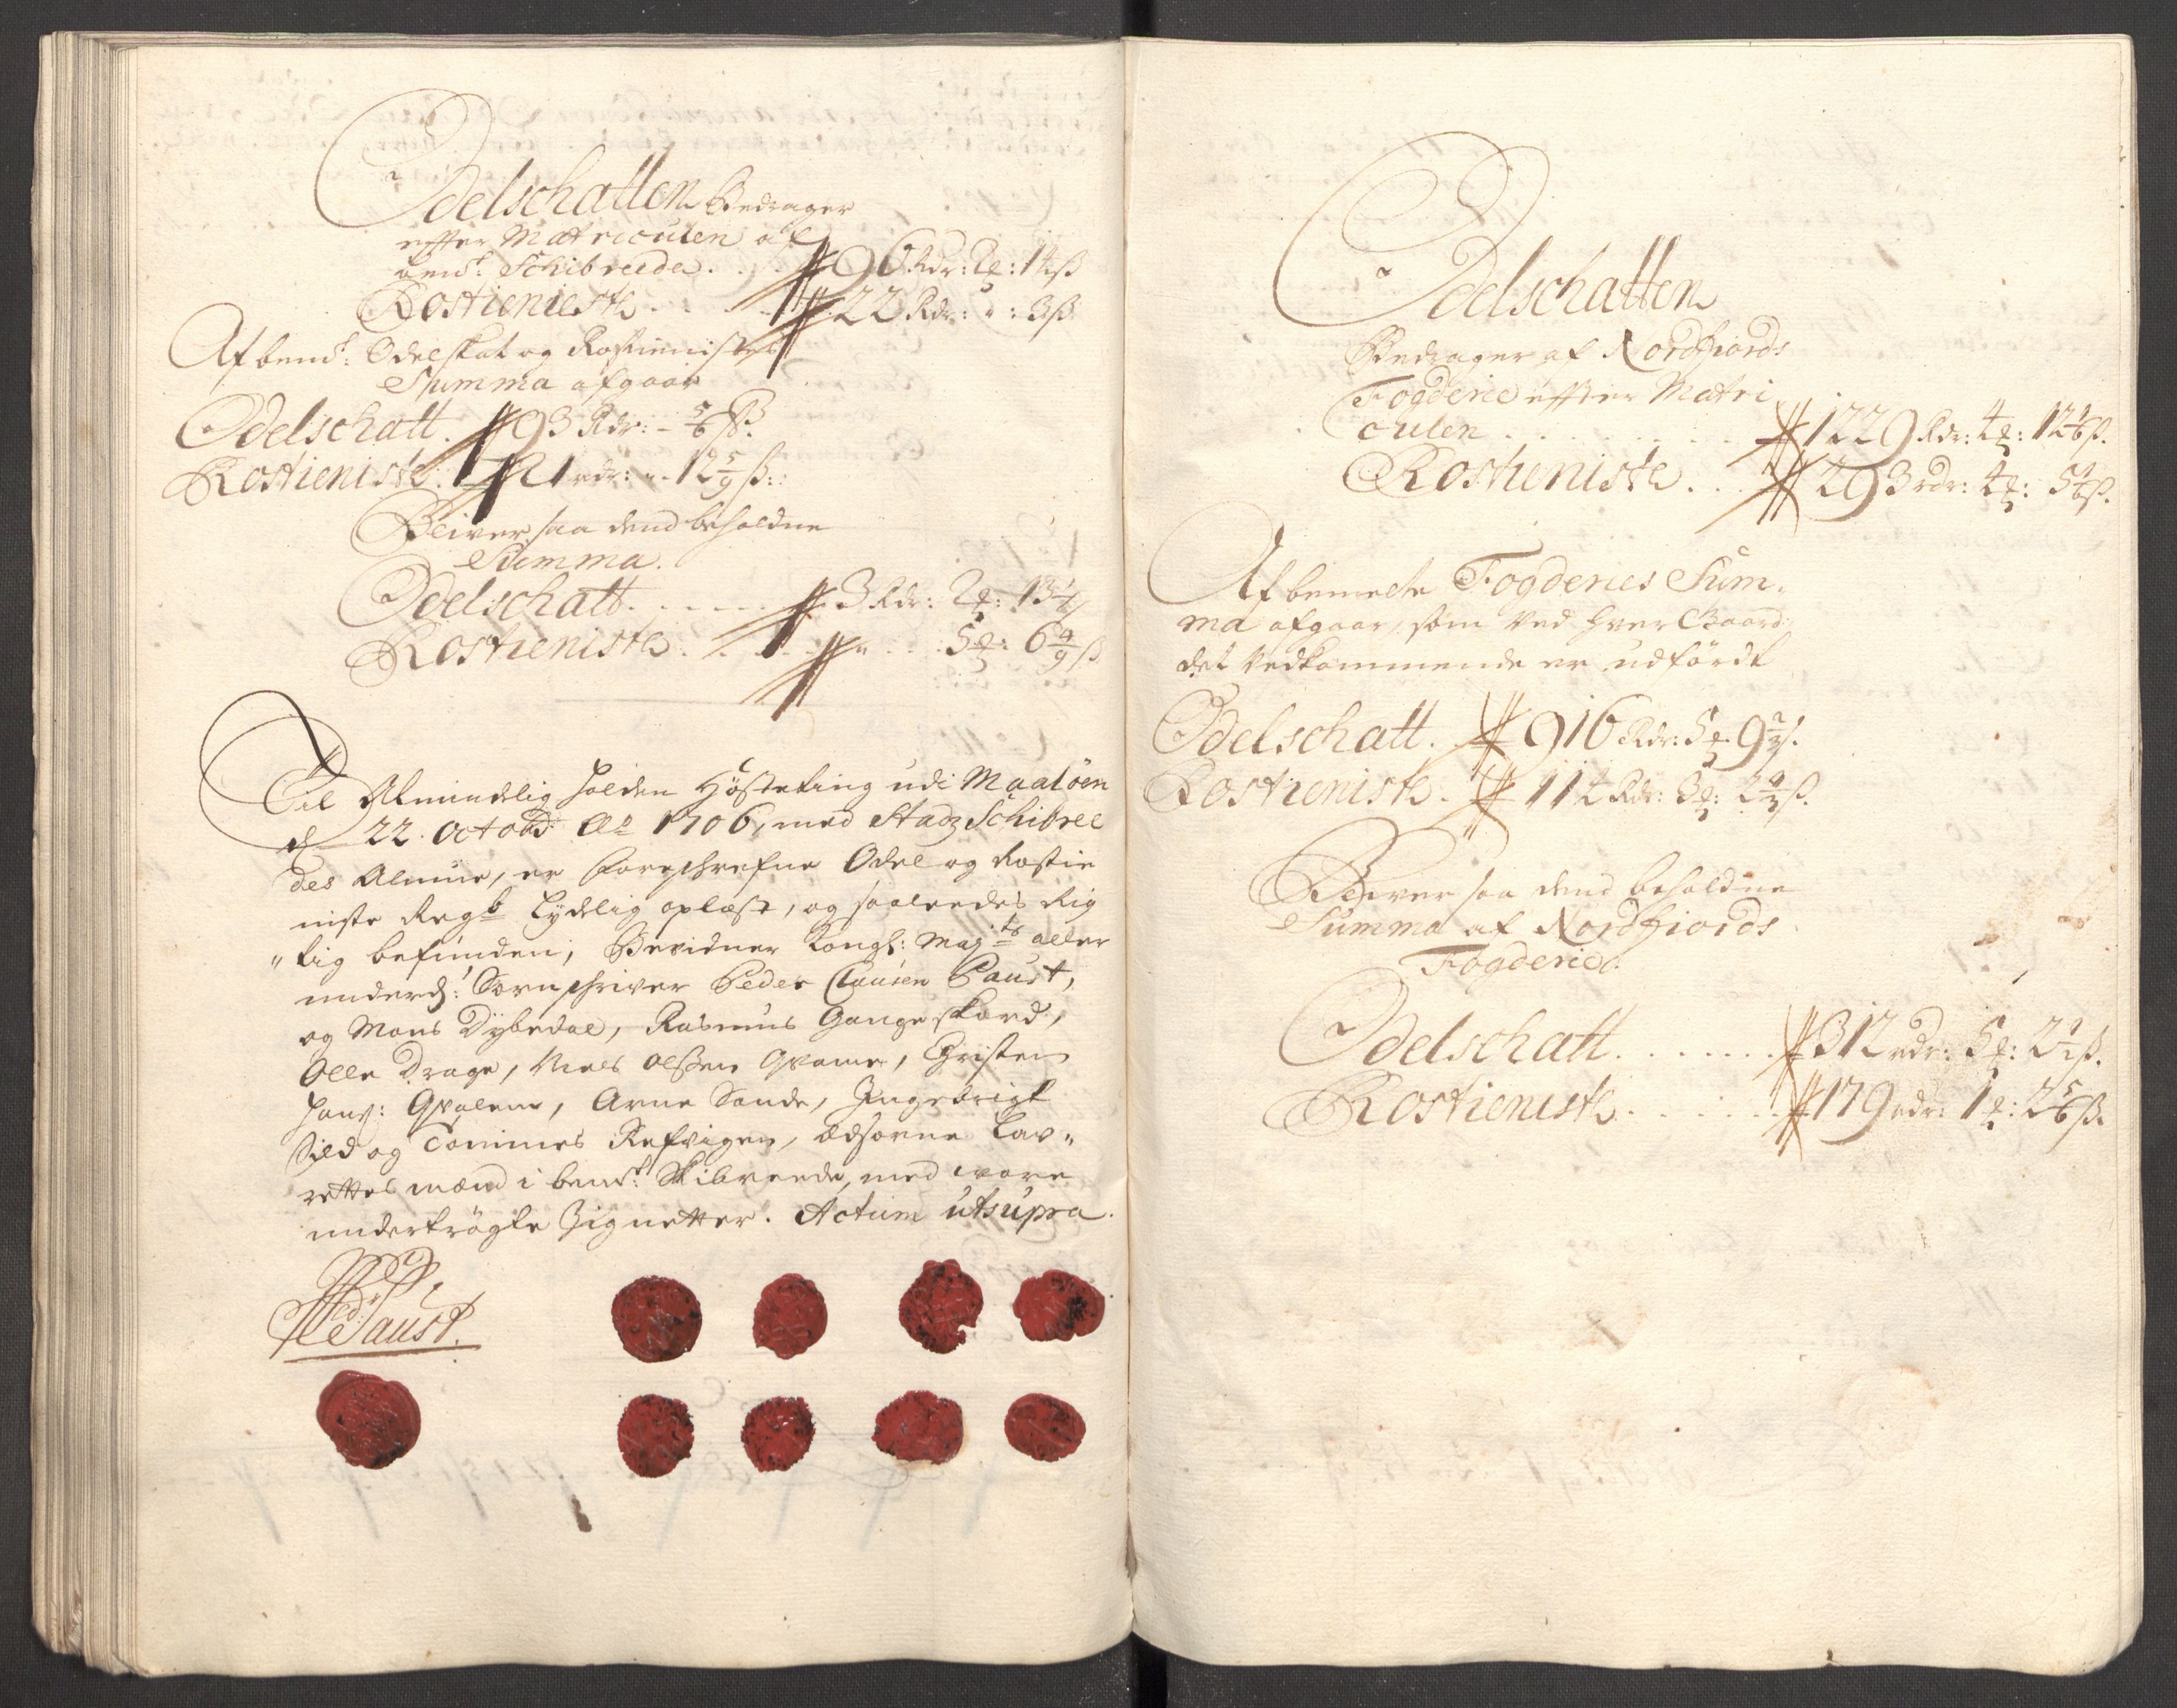 Odelschatten Bedrager
effter Matriculen af
bemt: Schibreede . . 96 Rdr: 2 ꝑ: 14 ß
Rostieniste . . . 22 Rdr: " : 3 ß
Af bemt: Odelskat og Rostienistes
Summa afgaar
Odelschatt . 93 Rdr: - 5/6 ß.
Rostieniste . 21 rdr: " - 12 5/9 ß:
Bliver saa dend beholdne
Summa.
Odelschatt . . . . . 3 Rdr: 2 ꝑ: 13 1/6 ß
Rostieniste . . . . " . . 5 ꝑ: 6 4/9 ß
Til Almindelig holden Høsteting udi Maaløen
d 22. Octobr Ao 1706, med Stadz Schibree
des Almue, er forschrefne Odel og Rostie
niste Regr lydelig oplæst, og saaleedes Rig
"tig befunden, Bevidner Kongl: Maj:ts aller
underd: Sornschriver Peder Clausen Paust,
og Mons Dybedal, Rasmus Gangeskard,
Olle Drage, Niels Olssen Qvame, Christen
Hans: Qvalene, Arne Sande, Ingebrigt
Sild og Tommes Refvigen, Edsorne Lav-
rettes mænd i bemt: Skibreede, med vore
undertrögte Zignetter. Actum utsupra.
Ped Paust.
Odelschatten
Bedrager af Nordfiords
Fogderie effter Matri
culen . . . . . . . 1229 Rdr: 4 ꝑ: 12 1/6 ß.
Rostieniste . . 293 rdr: 4 ꝑ: 5 1/6 ß.
Af bemelte Fogderies Sum-
ma afgaar, som ved hver Gaard
det vedkommende er udførdt
Odelschatt . 916 Rdr: 5 ꝑ 9 2/3 ß.
Rostieniste . 114 Rdr: 3 ꝑ: 2 1/3 ß.
Bliver saa dend beholdne
Summa af Nordfiords
Fogderie.
Odelschatt . . . . . . 312 rdr: 5 ꝑ: 2 1/2 ß.
Rostieniste . . . . . 179 rdr: 1 ꝑ: 2 5/6 ß.